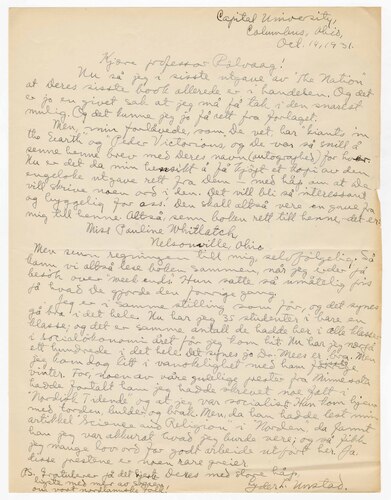 Capital University,
Columbus, Ohio,
Oct. 19, 1931.
Kjære professor Rölvaag!
Nu så jeg i sisste utgave av "The Nation"
at Deres sisste bok allerede er i handelen. Og det
er jo en givet sak at jeg må få tak i den snarest
mulig. Og det kunne jeg jo få rett fra forlaget.
Men, min forlovede, som De vet, har "Giants in
the Earth" og "Peder Victorious, og De var så snill å
senne henne brev med Deres navn (autographed) for
Nu er det da min å få kjøpt et kopi av den
engelske utgave rett fra Dem i med håp om at De
vill skrive noen ord i den. Det vill bli så interessant
og hyggelig for oss. Den skall altså være en gave fra
mig till henne. Altså: senn boken rett till henne, det er:
Miss Pauline Whitlatch
Nelsonville, Ohio
Men senn regningen till mig, selvfølgelig. Så
kann vi altså lese boken sammen, når jeg er på
besøk over week ends. Hun satte så umåtelig pris
på hvad De gjorde den forrige gang.
Jeg er i samme stilling som før, og det synes
gå bra i det hele. Nu har jeg 35 studenter i bare en
klasse, og det er samme antall de hadde her i alle klasser
i socialøkonomi året før jeg kom hit. Nu har jeg næsst
ett hundrede i det hele. Det synes jo Dr. Mees er bra. Men
jeg kom dog litt i vanskelighet med ham
vinter. For, noen av våre prester fra Minnesota
hadde fortalt ham jeg hadde skrevet noe galt i
"Nordisk Tidende" og at jeg var socialist. Nu, han kom
med torden bulder og brak. Men, da han hadde lest min
artikkel "Science and Religion" i Norden, da fannt
han jeg var akkurat hvad jeg burde være; og så fikk
jeg mange lov ord for godt arbeide utført her. Ja,
disse prestene er noen rare greier.
Deres med stort håp,
Lyder L. Unstad.
P.S. Gratulerer på det beste